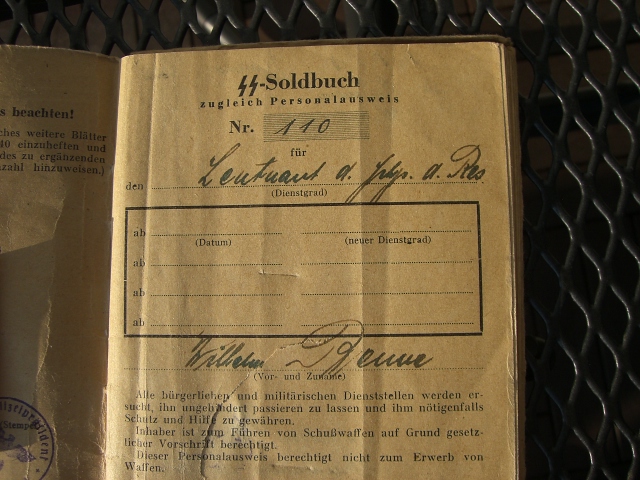 s beachten!
ches weitere Blätter
40 einzuheften und
des zu ergänzenden
zahl hinzuweisen.)
SS-Soldbuch
zugleich Personalausweis
Nr. 110
für
den Leutnant d. d. Res
(Dienstgrad)
ab
(Datum) (neuer Dienstgrad)
ab
ab
ab
Wilhelm
(Vor- und Zuname)
Alle bürgerlichen und militärischen Dienststellen werden er-
sucht, ihn ungehindert passieren zu lassen und ihm nötigenfalls
Schutz und Hilfe zu gewähren.
Inhaber ist zum Führen von Schußwaffen auf Grund gesetz-
licher Vorschrift berechtigt.
Dieser Personalausweis berechtigt nicht zum Erwerb von
Waffen.